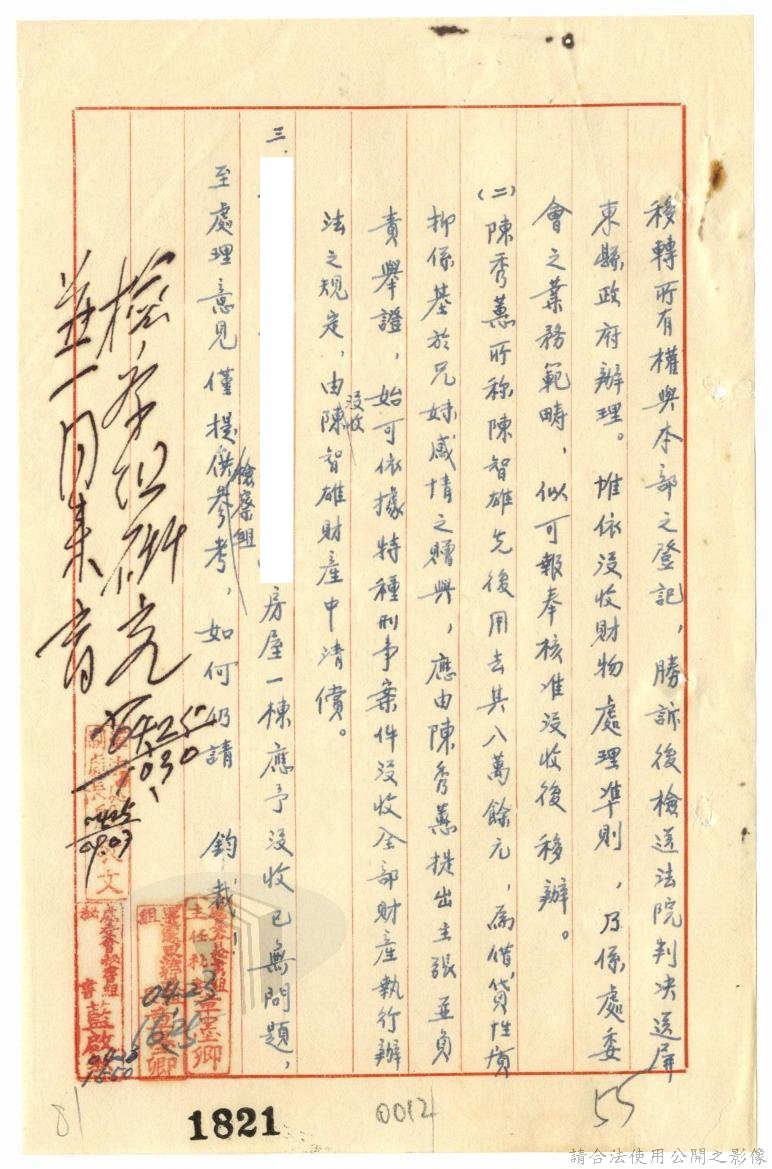 移轉所有權與本部之登記，勝訴後檢送法院判決送屏
東縣政府辦理。惟依没收財物處理準則，乃係處委
會之業務範疇，似可報奉核准没收後移辦。
(二)陳秀蕙所称陳智雄先後用去其八萬餘元，為借貸性質
抑係基於兄妹感情之贈與，應由陳秀蕙提出主張並負
責舉證，始可依據特種刑事案件没收全部財產執行辦
法之規定，由没收陳智雄財產中清償。
三、
房屋一棟應予没收已無問題，
檢察組
至處理意見僅提供參考，如何仍請 鈞裁，
檢察組研究
並一同東
04.25
1030
0425
09.03
文
處委會秘書組
秘書
藍啟
1550
主任秘
組
墨卿
04.23
1821
0012
55
81
請合法使用公開之影像